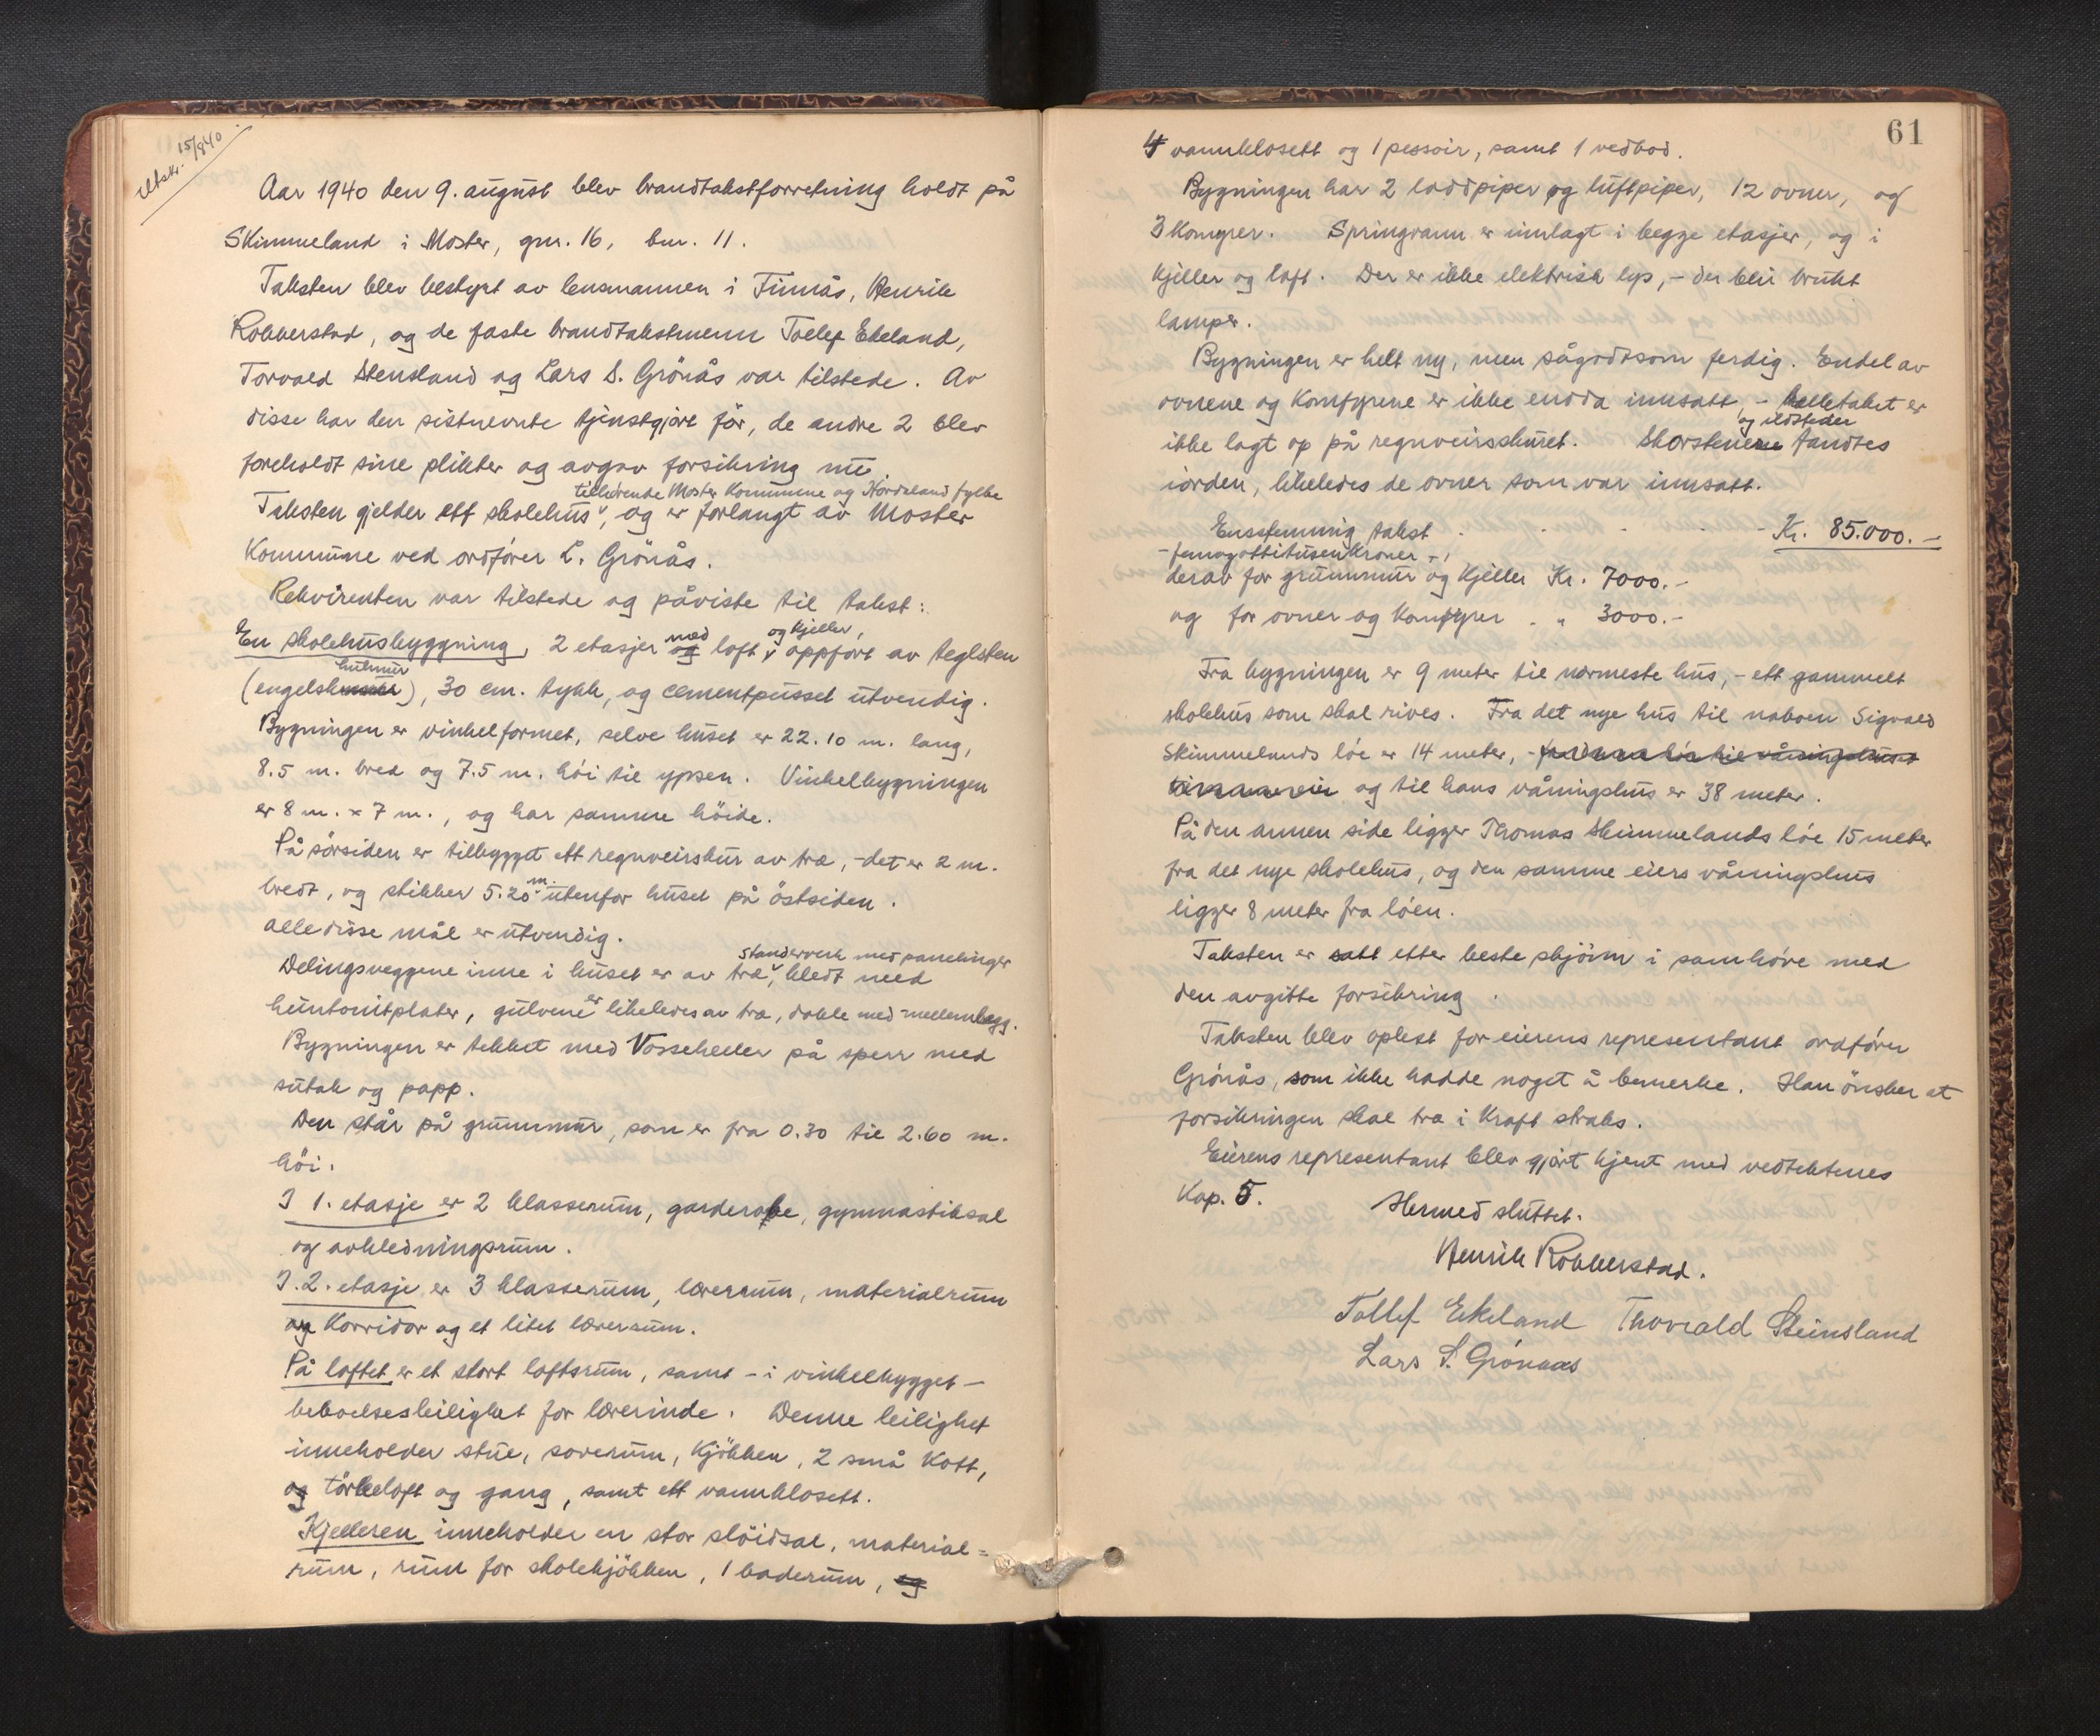 Utskr. 15/8 40
Aar 1940 den 9. august blev brandtakstforretning holdt på
Skimmeland i Moster, gnr. 16, bnr. 11.
Taksten blev bestyrt av lensmannen i Finnås, Henrik
Robberstad, og de faste brandtakstmenn Tollef Ekeland,
Torvald Stensland og Lars S. Grönås var tilstede. Av
disse har den sistnevnte tjenstgjort för, de andre 2 blev
foreholdt sine plikter og avgav forsikring nu.
tilhörende Moster Kommune og Hordaland fylke
Taksten gjelder ett skolehus, og er forlangt av Moster
Kommune ved ordförer L. Grönås.
Rekvirenten var tilstede og påviste til takst:
med og Kjeller,
En skolehusbyggning, 2 etasjer og loft, oppfört av teglsten
hulmur
(engelsk), 30 cm. tykk, og cementpusset utvendig.
Bygningen er vinkelformet, selve huset er 22.10 m. lang,
8.5 m. bred og 7.5 m. höi til ypsen. Vinkelbygningen
er 8 m. x 7 m., og har samme höide.
På sörsiden er tilbygget ett regnveirskur av træ, - det er 2 m.
bredt, og stikker 5.20 m. utenfor huset på östsiden.
Alle disse mål er utvendig.
standerverk med panelinger
Delingsveggene inne i huset er av træ, kledt med
huntonitplater, gulvene er likeledes av træ, doble med mellemlegg.
Bygningen er tekket med Vosseheller på sperr med
sutak og papp.
Den står på grunnmur, som er fra 0.30 til 2.60 m.
höi.
I 1. etasje er 2 klasserum, garderobe, gymnastiksal
og avkledningsrum.
I. 2. etasje er 3 klasserum, lærerrum, materialrum
og Korridor og et litet lærerrum.
På loftet er et stort loftsrum, samt - i vinkelbygget -
beboelsesleilighet for lærerinde. Denne leilighet
inneholder stue, soverum, Kjökken, 2 små Kott,
og törkeloft og gang, samt ett vannklosett.
Kjelleren inneholder en stor slöidsal, material=
rum, rum for skolekjökken, 1 baderum, og
61
4 vannklosett og 1 pissoir, samt 1 vedbod.
Bygningen har 2 loddpiper og luftpiper, 12 ovner, og
3 Komyrer. Springvann er innlagt i begge etasjer, og i
Kjeller og loft. Der er ikke elektrisk lys, - der blir brukt
lamper.
Bygningen er helt ny, men sågodtsom ferdig. Endel av
ovnene og Komfyrene er ikke endda innsatt, - helletaket er
og ildsteder
ikke lagt op på regnveirsskuret. Skorstenene fandtes
iorden, likeledes de ovner som var innsatt.
Enstemmig takst . . . . - Kr. 85.000.-
- femogottitusenkroner -,
derav for grunnmur og Kjeller Kr. 7000.-
og for ovner og Komfyrer . " 3000.-
Fra bygningen er 9 meter til nærmeste hus, - ett gammelt
skolehus som skal rives. Fra det nye hus til naboen Sigvald
Skimmelands löe er 14 meter, -
og til hans våningshus er 38 meter.
På den annen side ligger Thomas Skimmelands löe 15 meter
fra det nye skolehus, og den samme eiers våningshus
ligger 8 meter fra löen.
Taksten er satt etter beste skjönn i samhöve med
den avgitte forsikring.
Taksten blev oplest for eierens representant ordförer
Grönås, som ikke hadde noget å bemerke. Han önsker at
forsikringen skal træ i Kraft straks.
Eierens representant blev gjört kjent med vedtektenes
Kap. 5. Hermed sluttet.
Henrik Robberstad.
Tollef Ekeland Thorvald Steinsland
Lars S. Grönaas